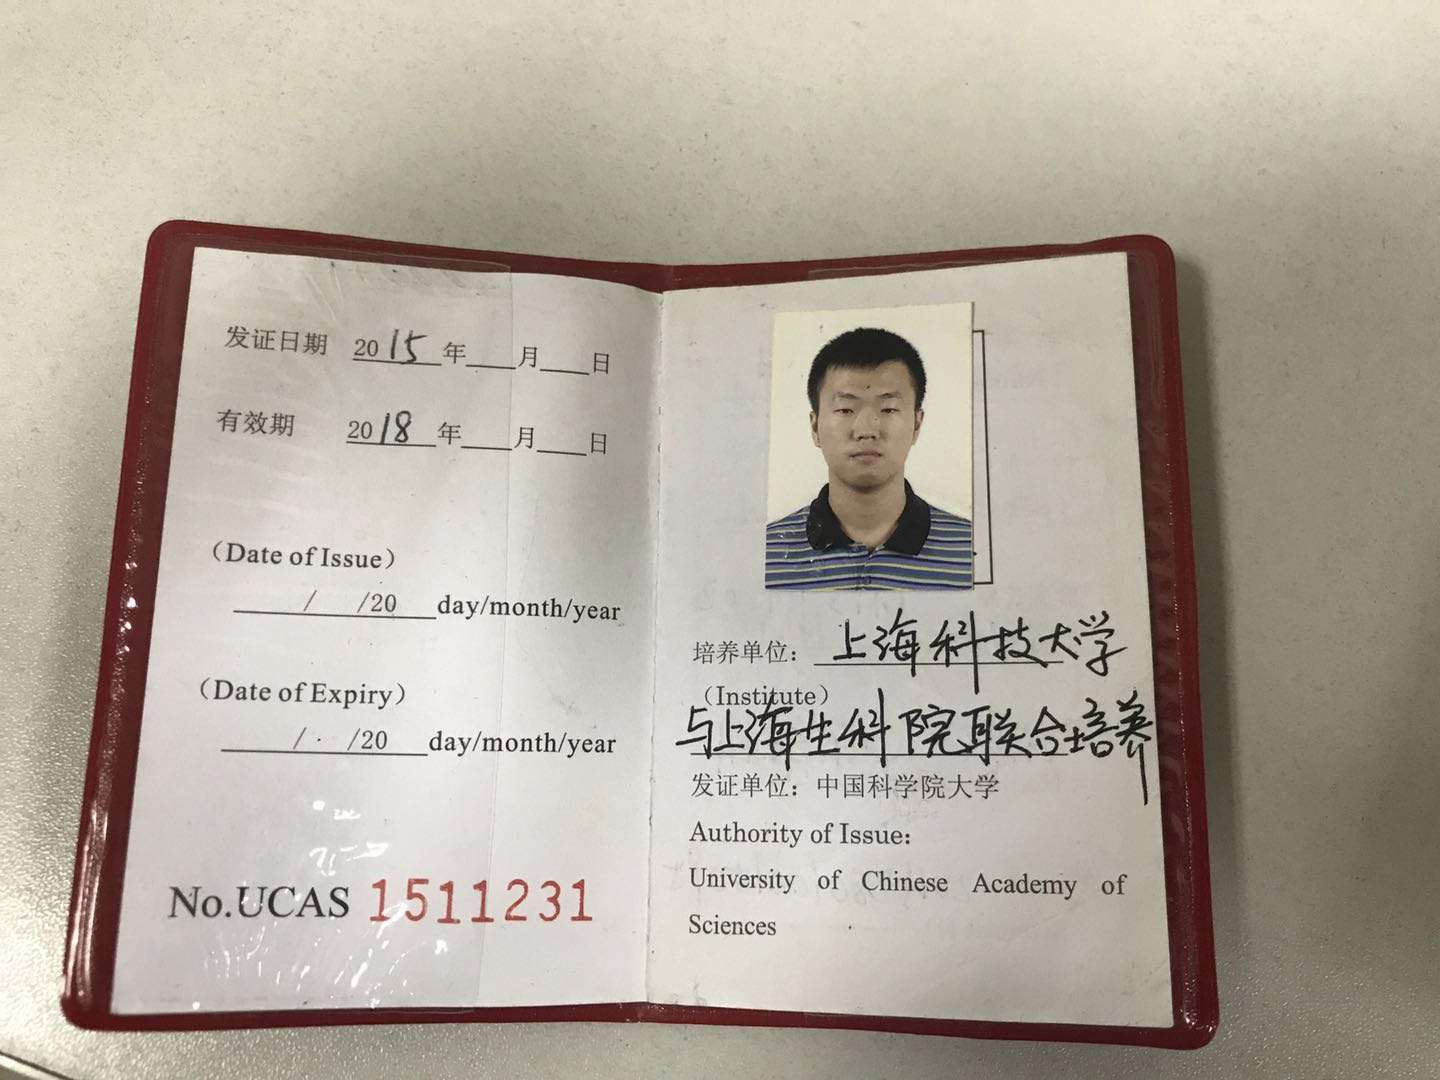 发证日期 2015年___月___日
有效期 2018年___月___日
（Date of Issue）
______/___/20____day/month/year
（Date of Expiry）
______/___/20____day/month/year
No.UCAS 1511231
培养单位：上海科技大学
（Institute）
与上海生科院联合培养
发证单位：中国科学院大学
Authority of Issue:
University of Chinese Academy of
Sciences